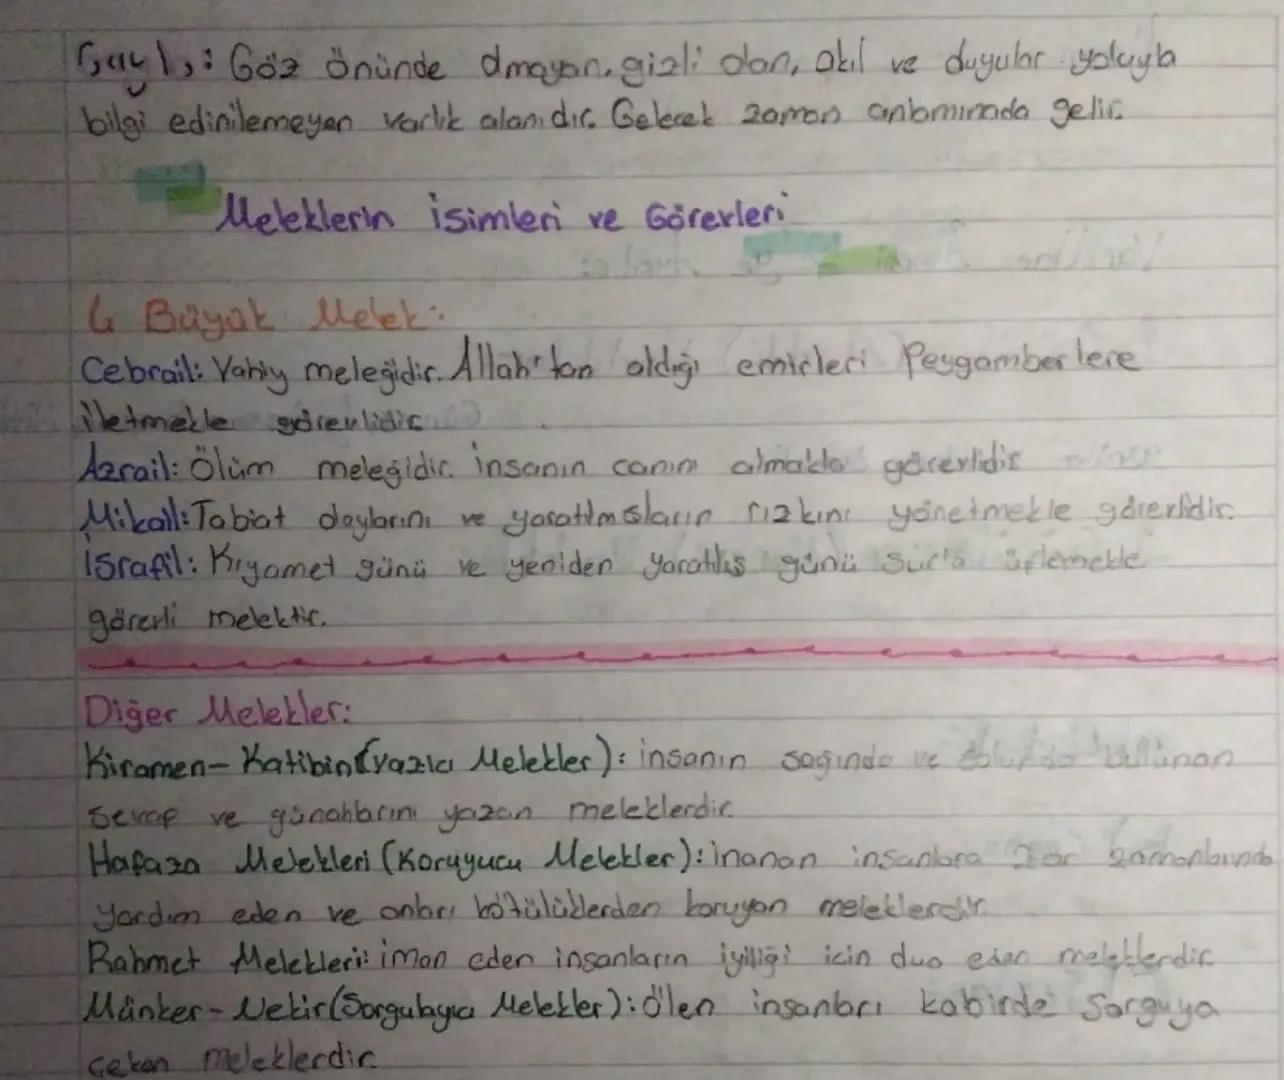 Gayb: Göz önünde olmayan, gizli olan, akıl ve duyular yoluyla
bilgi edinilemeyen varlık alanıdır. Gelecek zaman anlamınada gelir.
Meleklerin isimleri ve Görevleri
4 Büyük Melek:
Cebrail: Vahiy meleğidir. Allah'tan aldığı emirleri Peygamberlere
iletmekle görevlidir.
Azrail: Ölüm meleğidir. İnsanın canını almakla görevlidir
Mikail: Tabiat olaylarını ve yaratılmışların rızkını yönetmekle görevlidir.
İsrafil: Kıyamet günü ve yeniden yaratılış günü Sur'a üflemekle
görevli melektir.
Diğer Melekler:
Kiramen-Katibin (Yazıcı Melekler): insanın sağında ve solunda bulunan
sevap ve günahlarını yazan meleklerdir.
Hafaza Melekleri (Koruyucu Melekler): inanan insanlara zor zamanlarında
yardım eden ve onları kötülüklerden koruyan meleklerdir.
Rahmet Melekleri: iman eden insanların iyiliği için dua eden meleklerdir.
Münker-Nekir (Sorgulayıcı Melekler): Ölen insanları kabirde Sorguya
çeken meleklerdir.